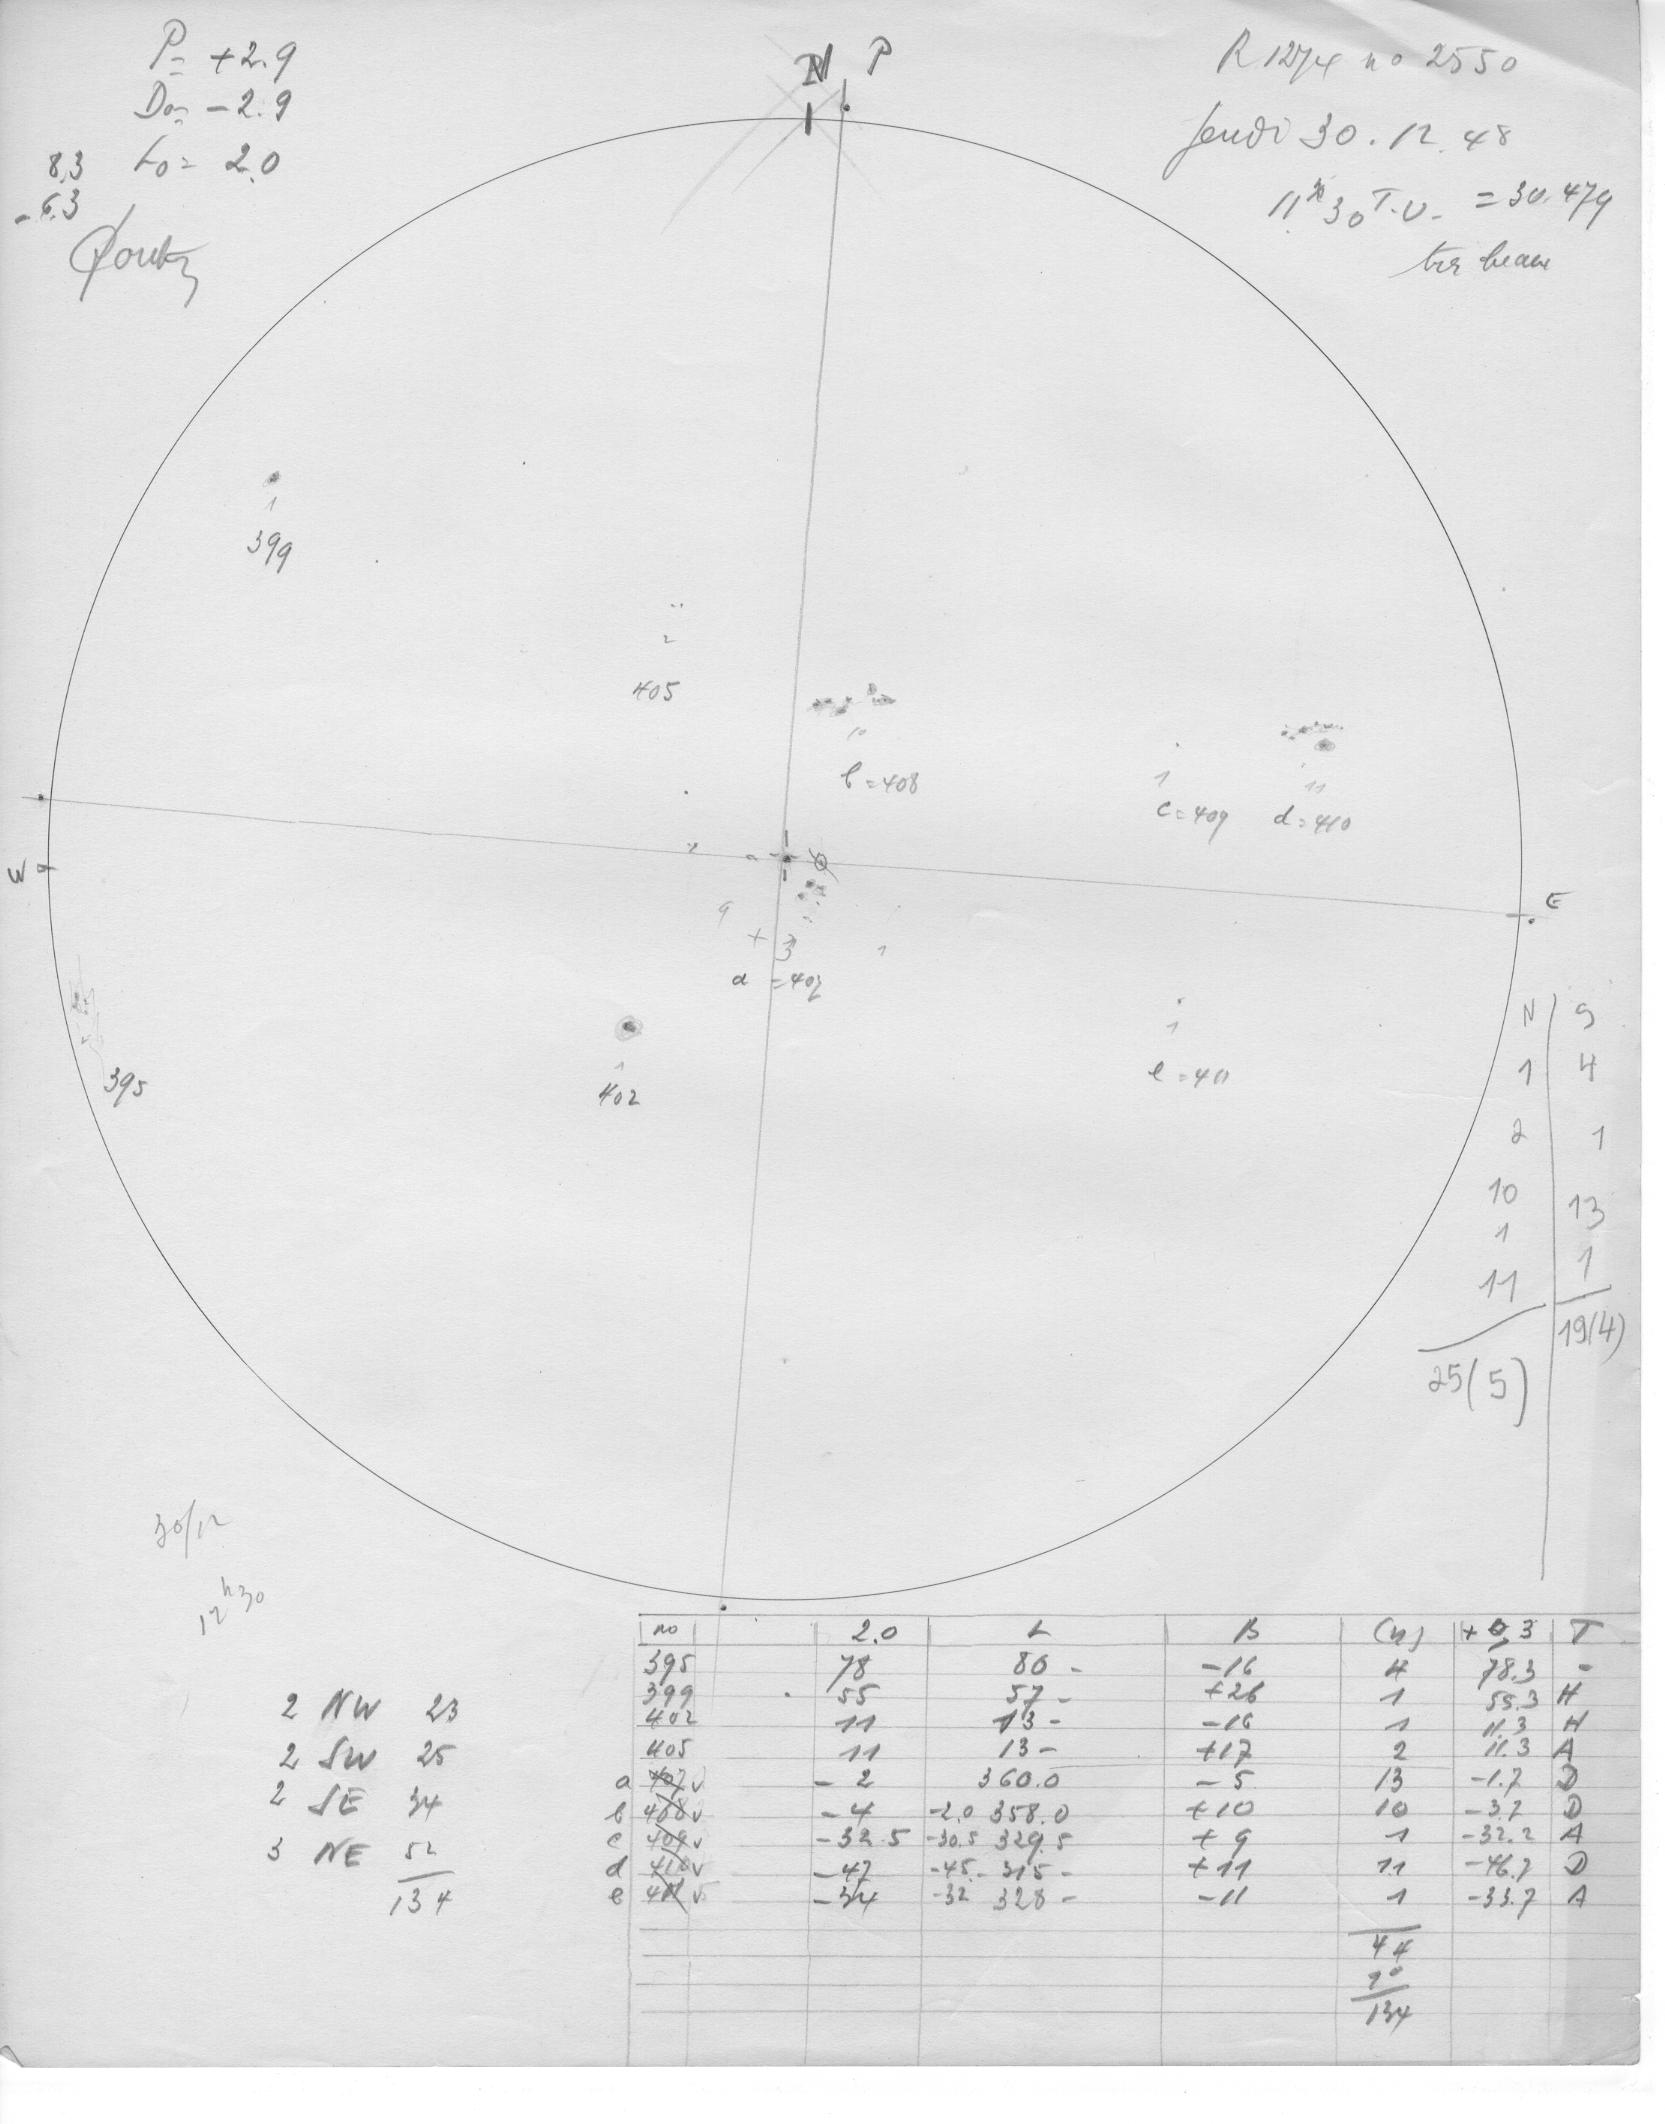 P= +2.9
Do= -2.9
Lo= 2.0
8.3
-6.3
N P
R 1274 no 2550
Jeudi 30.12.48
11h30 T.U. = 30.479
très beau
1
399
2
405
10
b=408
1
c=409
11
d=410
W
E
9
+ 3
1
a =407
395
1
402
1
e=411
N S
1 4
2 1
10 13
1 1
11
19(4)
25(5)
30/12
12h30
2 NW 23
2 SW 25
2 SE 34
3 NE 52
134
no 2.0 L B (n) T
395 78 80 - -16 4 78.3 -
399 55 57 - +26 1 55.3 H
402 11 13 - -16 1 11.3 H
405 11 13 - +17 2 11.3 A
a 407 -2 360.0 -5 13 -1.7 D
b 408 -4 -2.0 358.0 +10 10 -3.7 D
c 409 -32.5 -30.5 329.5 +9 1 -32.2 A
d 410 -47 -45- 315- +11 11 -46.7 D
e 411 -34 -32 328- -11 1 -33.7 A
44
134